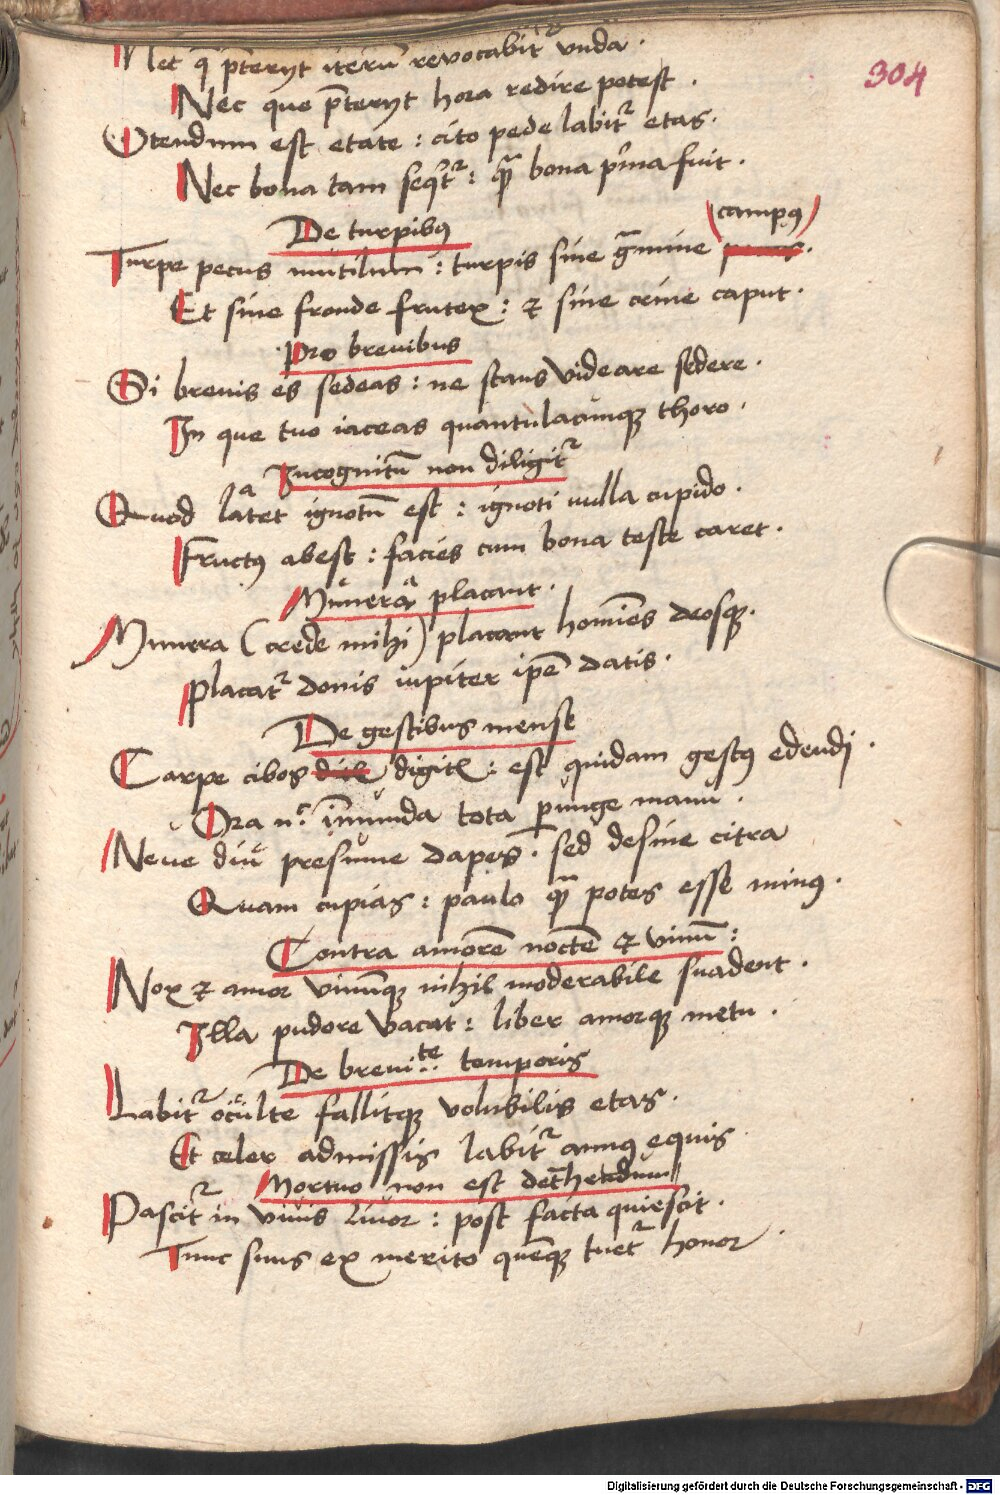 Nec q̄ p̄terijt iterū revocabitʳ vnda ·
304
Nec que p̄terijt hora redire potest ·
Vtendum est etate : cito pede labitʳ etas ·
Nec bona tam seqͥtʳ : qᷓ bona pͥma fuit ·
De turpibꝯ
(campꝯ)
Turpe pecus mutilum : turpis sine gᷓmine ·
Et sine fronde frutex : ⁊ sine crine caput ·
Pro brevibus
Si brevis es sedeas : ne stans videare sedere ·
In que tuo iaceas quantulacunqꝫ thoro ·
Incognitū non diligitʳ
Quod latet ignotū est : ignoti nulla cupido ·
Fructꝯ abest : facies cum bona teste caret ·
Munera placant ·
Munera (crede mihi) placant homīes deosqꝫ ·
Placatʳ donis iupiter ip̄e datis ·
De gestibus mense
Carpe cibos digitꝭ : est quidam gestꝯ edendj ·
Ora nͨ īmunda tota p̱unge manu ·
Neve diu presume dapes · sed desine citra
Quam cupias : paulo qᷓ potes esse minꝯ ·
Contra amorē noctē ⁊ vinū :
Nox ⁊ amor vinūqꝫ nihil moderabile suadent ·
Illa pudore vacat : liber amorqꝫ metu ·
De breviᵗᵉ temporis
Labitʳ oculte fallitqꝫ volubilis etas ·
Et celer admissis labitʳ annꝯ equis
Mortuo non est det̄hendum
Pascitʳ in vivis livor : post facta quiescit ·
Tunc suus ex merito quēqꝫ tuetʳ honor ·
Digitalisierung gefördert durch die Deutsche Forschungsgemeinschaft - DFG